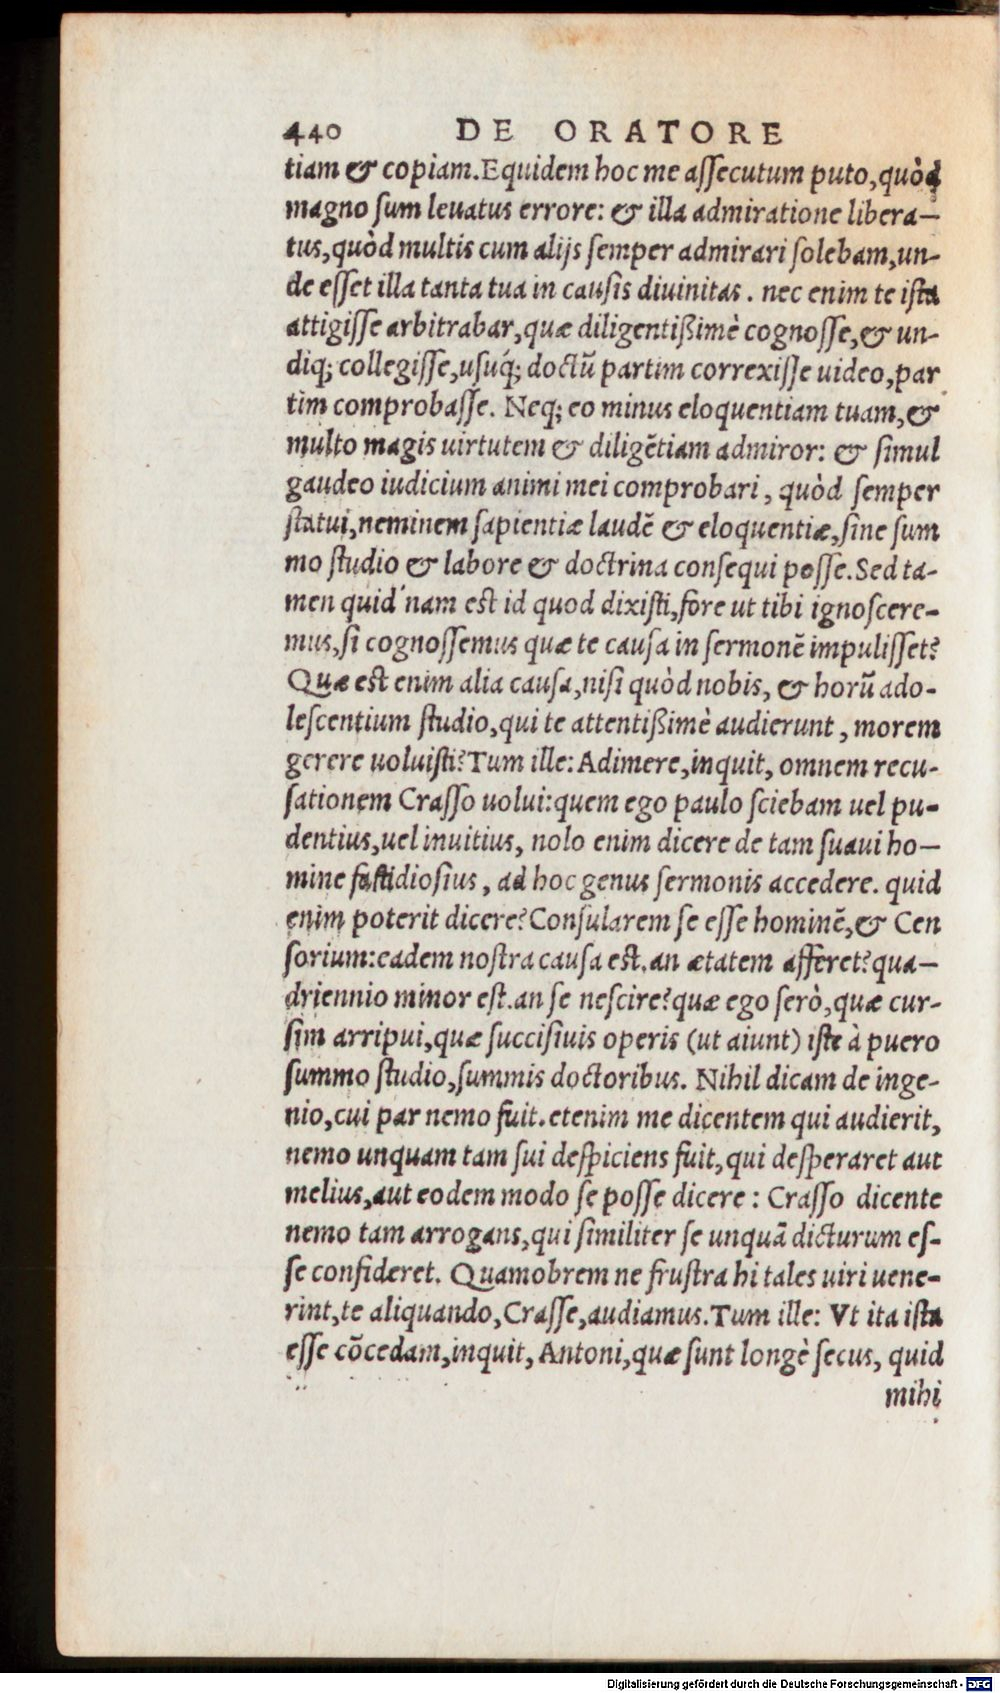 440 DE ORATORE
tiam & copiam. Equidem hoc me aſſecutum puto, quòd
magno ſum leuatus errore: & illa admiratione libera-
tus, quòd multis cum alijs ſemper admirari ſolebam, un-
de eſſet illa tanta tua in cauſis diuinitas. nec enim te iſta
attigiſſe arbitrabar, quæ diligentißimè cognoſſe, & un-
diq; collegiſſe, uſuq́; doctũ partim correxiſſe uideo, par
tim comprobaſſe. Neq; eo minus eloquentiam tuam, &
multo magis uirtutem & diligẽtiam admiror: & ſimul
gaudeo iudicium animi mei comprobari, quòd ſemper
ſtatui, neminem ſapientiæ laudẽ & eloquentiæ, ſine ſum
mo ſtudio & labore & doctrina conſequi poſſe. Sed ta-
men quid nam est id quod dixiſti, fore ut tibi ignoſcere-
mus, ſi cognoſſemus quæ te cauſa in ſermonẽ impuliſſet?
Quæ est enim alia cauſa, niſi quòd nobis, & horũ ado-
leſcentium ſtudio, qui te attentißimè audierunt, morem
gerere uoluiſti? Tum ille: Adimere, inquit, omnem recu-
ſationem Craſſo uolui: quem ego paulo ſciebam uel pu-
dentius, uel inuitius, nolo enim dicere de tam ſuaui ho-
mine faſtidioſius, ad hoc genus ſermonis accedere. quid
enim poterit dicere? Conſularem ſe eſſe hominẽ, & Cen
ſorium: eadem noſtra cauſa est. an ætatem afferet? qua-
driennio minor eſt. an ſe neſcire? quæ ego ſerò, quæ cur-
ſim arripui, quæ ſucciſiuis operis (ut aiunt) iſte à puero
ſummo ſtudio, ſummis doctoribus. Nihil dicam de inge-
nio, cui par nemo fuit. etenim me dicentem qui audierit,
nemo unquam tam ſui deſpiciens fuit, qui deſperaret aut
melius, aut eodem modo ſe poſſe dicere: Craſſo dicente
nemo tam arrogans, qui ſimiliter ſe unquã dicturum eſ-
ſe confideret. Quamobrem ne fruſtra hi tales uiri uene-
rint, te aliquando, Craſſe, audiamus. Tum ille: Vt ita iſta
eſſe cõcedam, inquit, Antoni, quæ ſunt longè ſecus, quid
mihi
Digitalisierung gefördert durch die Deutsche Forschungsgemeinschaft - DFG